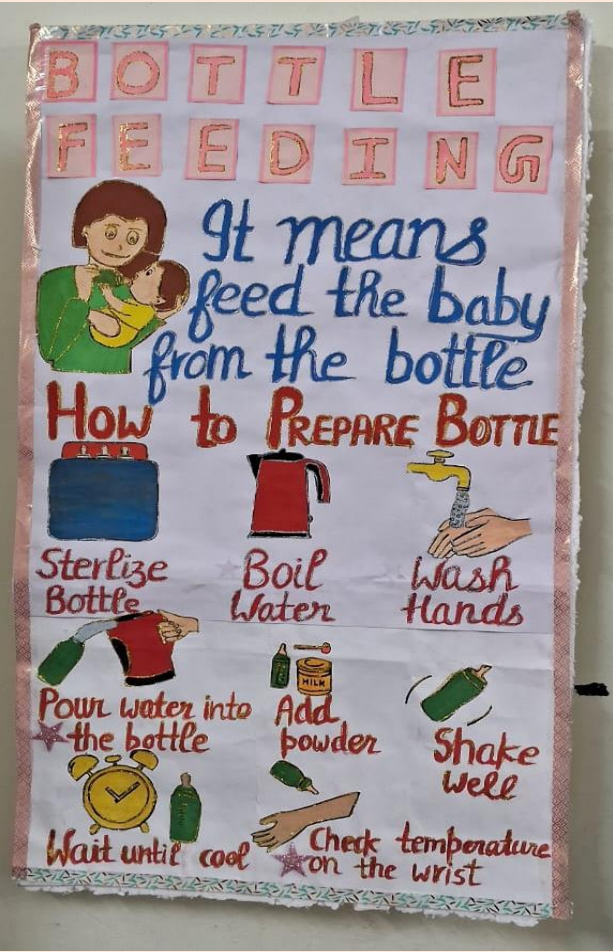 BOTTLE
FEEDING
It means
feed the baby
from the bottle
HOW to PREPARE BOTTLE
Sterlize
Bottle
Boil
Water
Wash
Hands
Pour water into
the bottle
MILK
Add
powder
Shake
well
Wait until cool
Check temperature
on the wrist